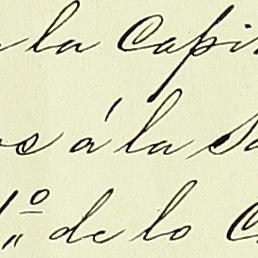 la Capi
os á la S
1º de lo C